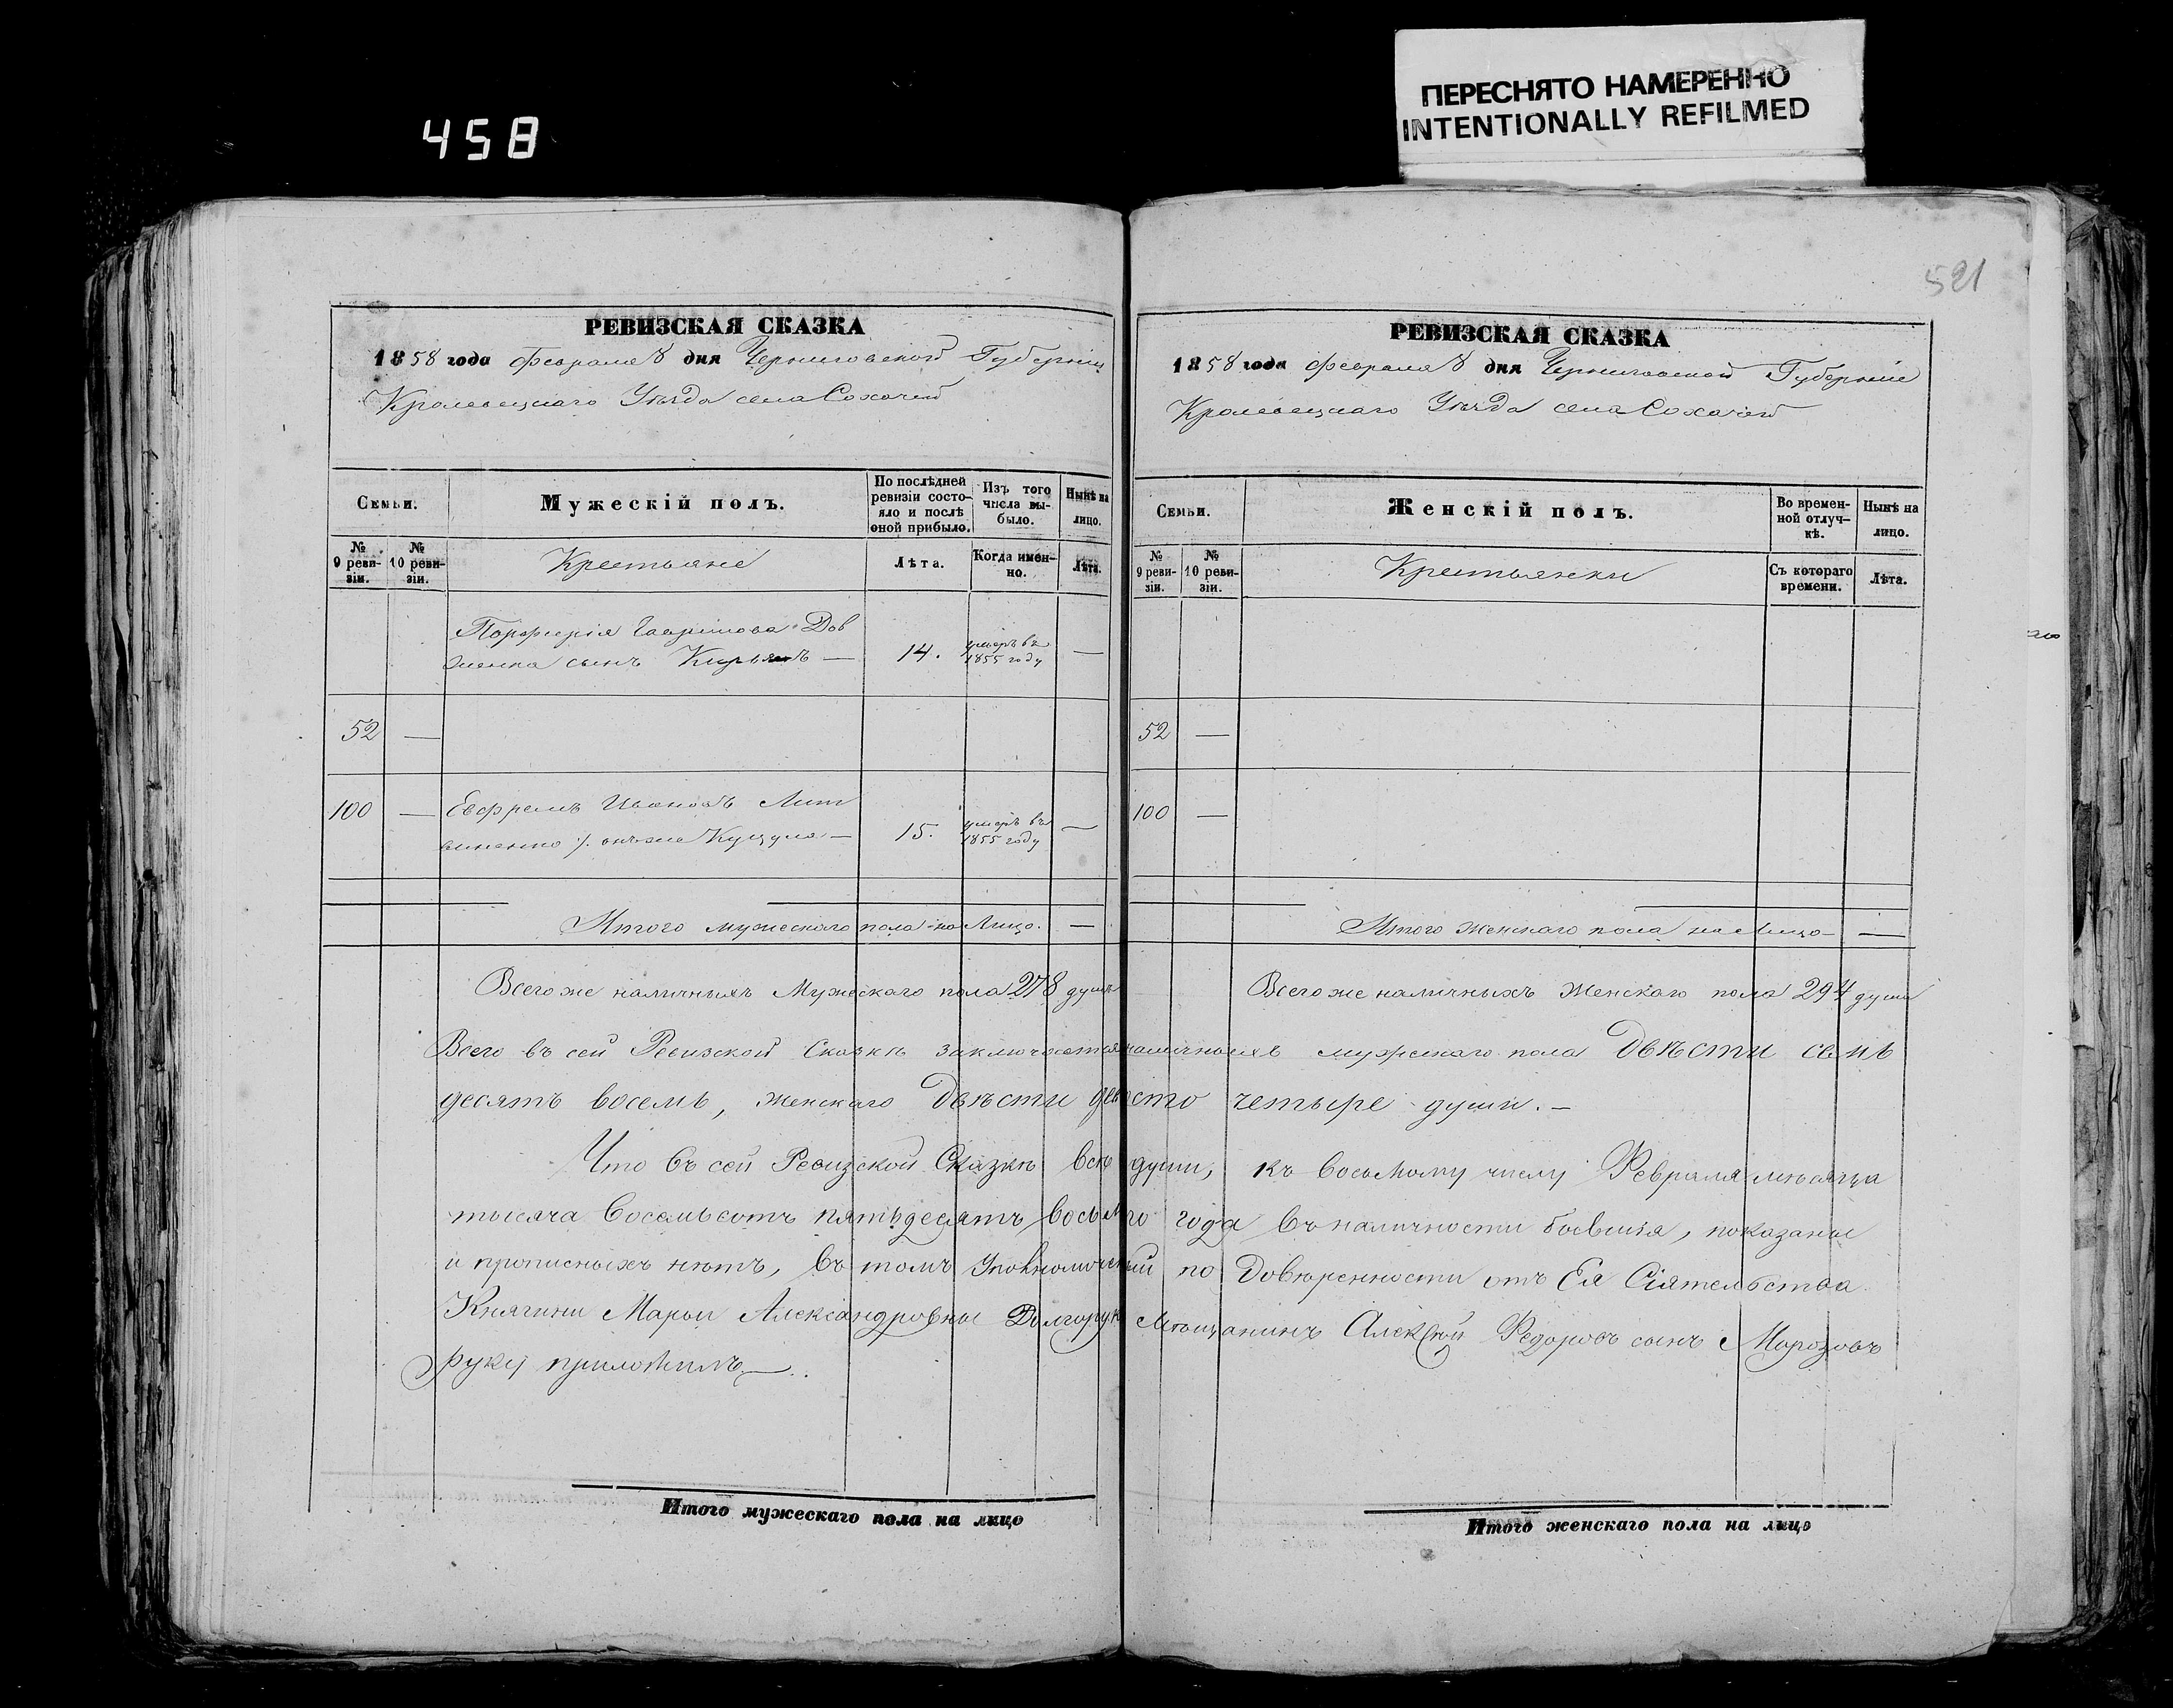 ПЕРЕСНЯТО НАМЕРЕННО
INTENTIONALLY REFILMED
458
521
РЕВИЗСКАЯ СКАЗКА
1858 года февраля 8 дня Черниговской Губерніи
Кролевецкаго Уѣзда села Сохачей
Семьи.
Мужескій полъ.
По послѣдней ревизіи состояло и послѣ оной прибыло.
Изъ того числа выбыло.
Нынѣ на лицо.
№ 9 ревизіи.
№ 10 ревизіи.
Крестьяне
Лѣта.
Когда именно.
Лѣта.
Порфирія Гаврилова Дов
женка сынъ Кирьянъ —
14.
умеръ въ
1855 году
—
52
—
100
—
Евфремъ Ивановъ Лит
виненко онъ же Куцула —
15.
умеръ въ
1855 году
—
Итого мужескаго пола на Лицо. —
Всего же наличныхъ Мужескаго пола 278 душъ
РЕВИЗСКАЯ СКАЗКА
1858 года февраля 8 дня Черниговской Губерніи
Кролевецкаго Уѣзда села Сохачей
Семьи.
Женскій полъ.
Во временной отлучкѣ.
Нынѣ на лицо.
№ 9 ревизіи.
№ 10 ревизіи.
Крестьянки
Съ котораго времени.
Лѣта.
52
—
100
—
Итого Женскаго пола на Лицо — —
Всего же наличныхъ Женскаго пола 294 души
Всего въ сей Ревизской Сказкѣ заключается наличныхъ мужескаго пола Двѣсти семь
десятъ восемь, женскаго Двѣсти девяносто четыре души. —
Что въ сей Ревизской Сказкѣ всѣ души, къ восьмому числу Февраля мѣсяца
тысяча восемьсотъ пятьдесятъ восьмого года въ наличности бывшія, показаны
и прописныхъ нѣтъ, въ томъ Уполномоченный по Довѣренности отъ Ея Сіятельства
Княгини Марьи Александровны Долгорук Мѣщанинъ Алексѣй Федоровъ сынъ Морозовъ
руку приложилъ —..
Итого мужескаго пола на лицо
Итого женскаго пола на лицо